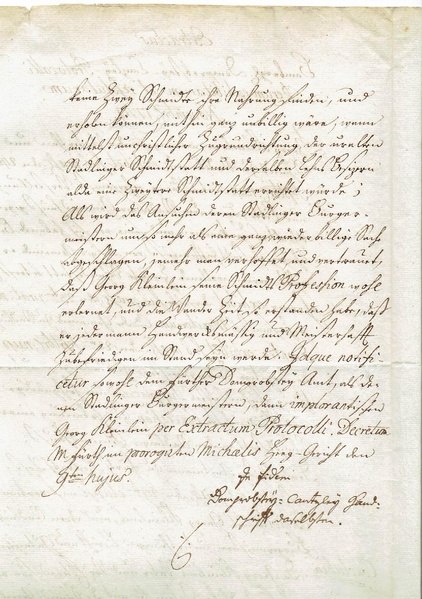 keine zwey Schmidte ihre Nahrung finden, und
erholen können, mithin ganz unbillig wäre, wenn
mittelst unchristlicher Zugrundrichtung, der uralten
Stadlinger Schmidtstatt und derselben Lehns Besizern
alda eine zweyte Schmidtstatt errichtet würde;
Als wird das Ansuchen deren Stadlinger Burger-
meistern umso mehr als eine ganz wieder billige Sach
abgeschlagen, jemehr man versichert, und vertrauet,
daß Georg Kleinlein seine Schmidts Profession wohl
erlernet, und die Wander Zeit so erstanden habe, daß
er jedermann Handwercksmäßig und Meisterhafft
zu befriedigen im Stand seyn werde. Idque notifi
cetur sowohl dem Fürther Domprobstey Amt, als de
nen Stadlinger Burgermeistern, dann implorantischen
Georg Kleinlein per Extractum Protocolli. Decretum
Fürth am prorogirten Michalis Gericht den
9ten hujus.
In fidem
Domprobstey-Cantzley Hand-
schrifft daselbsten.